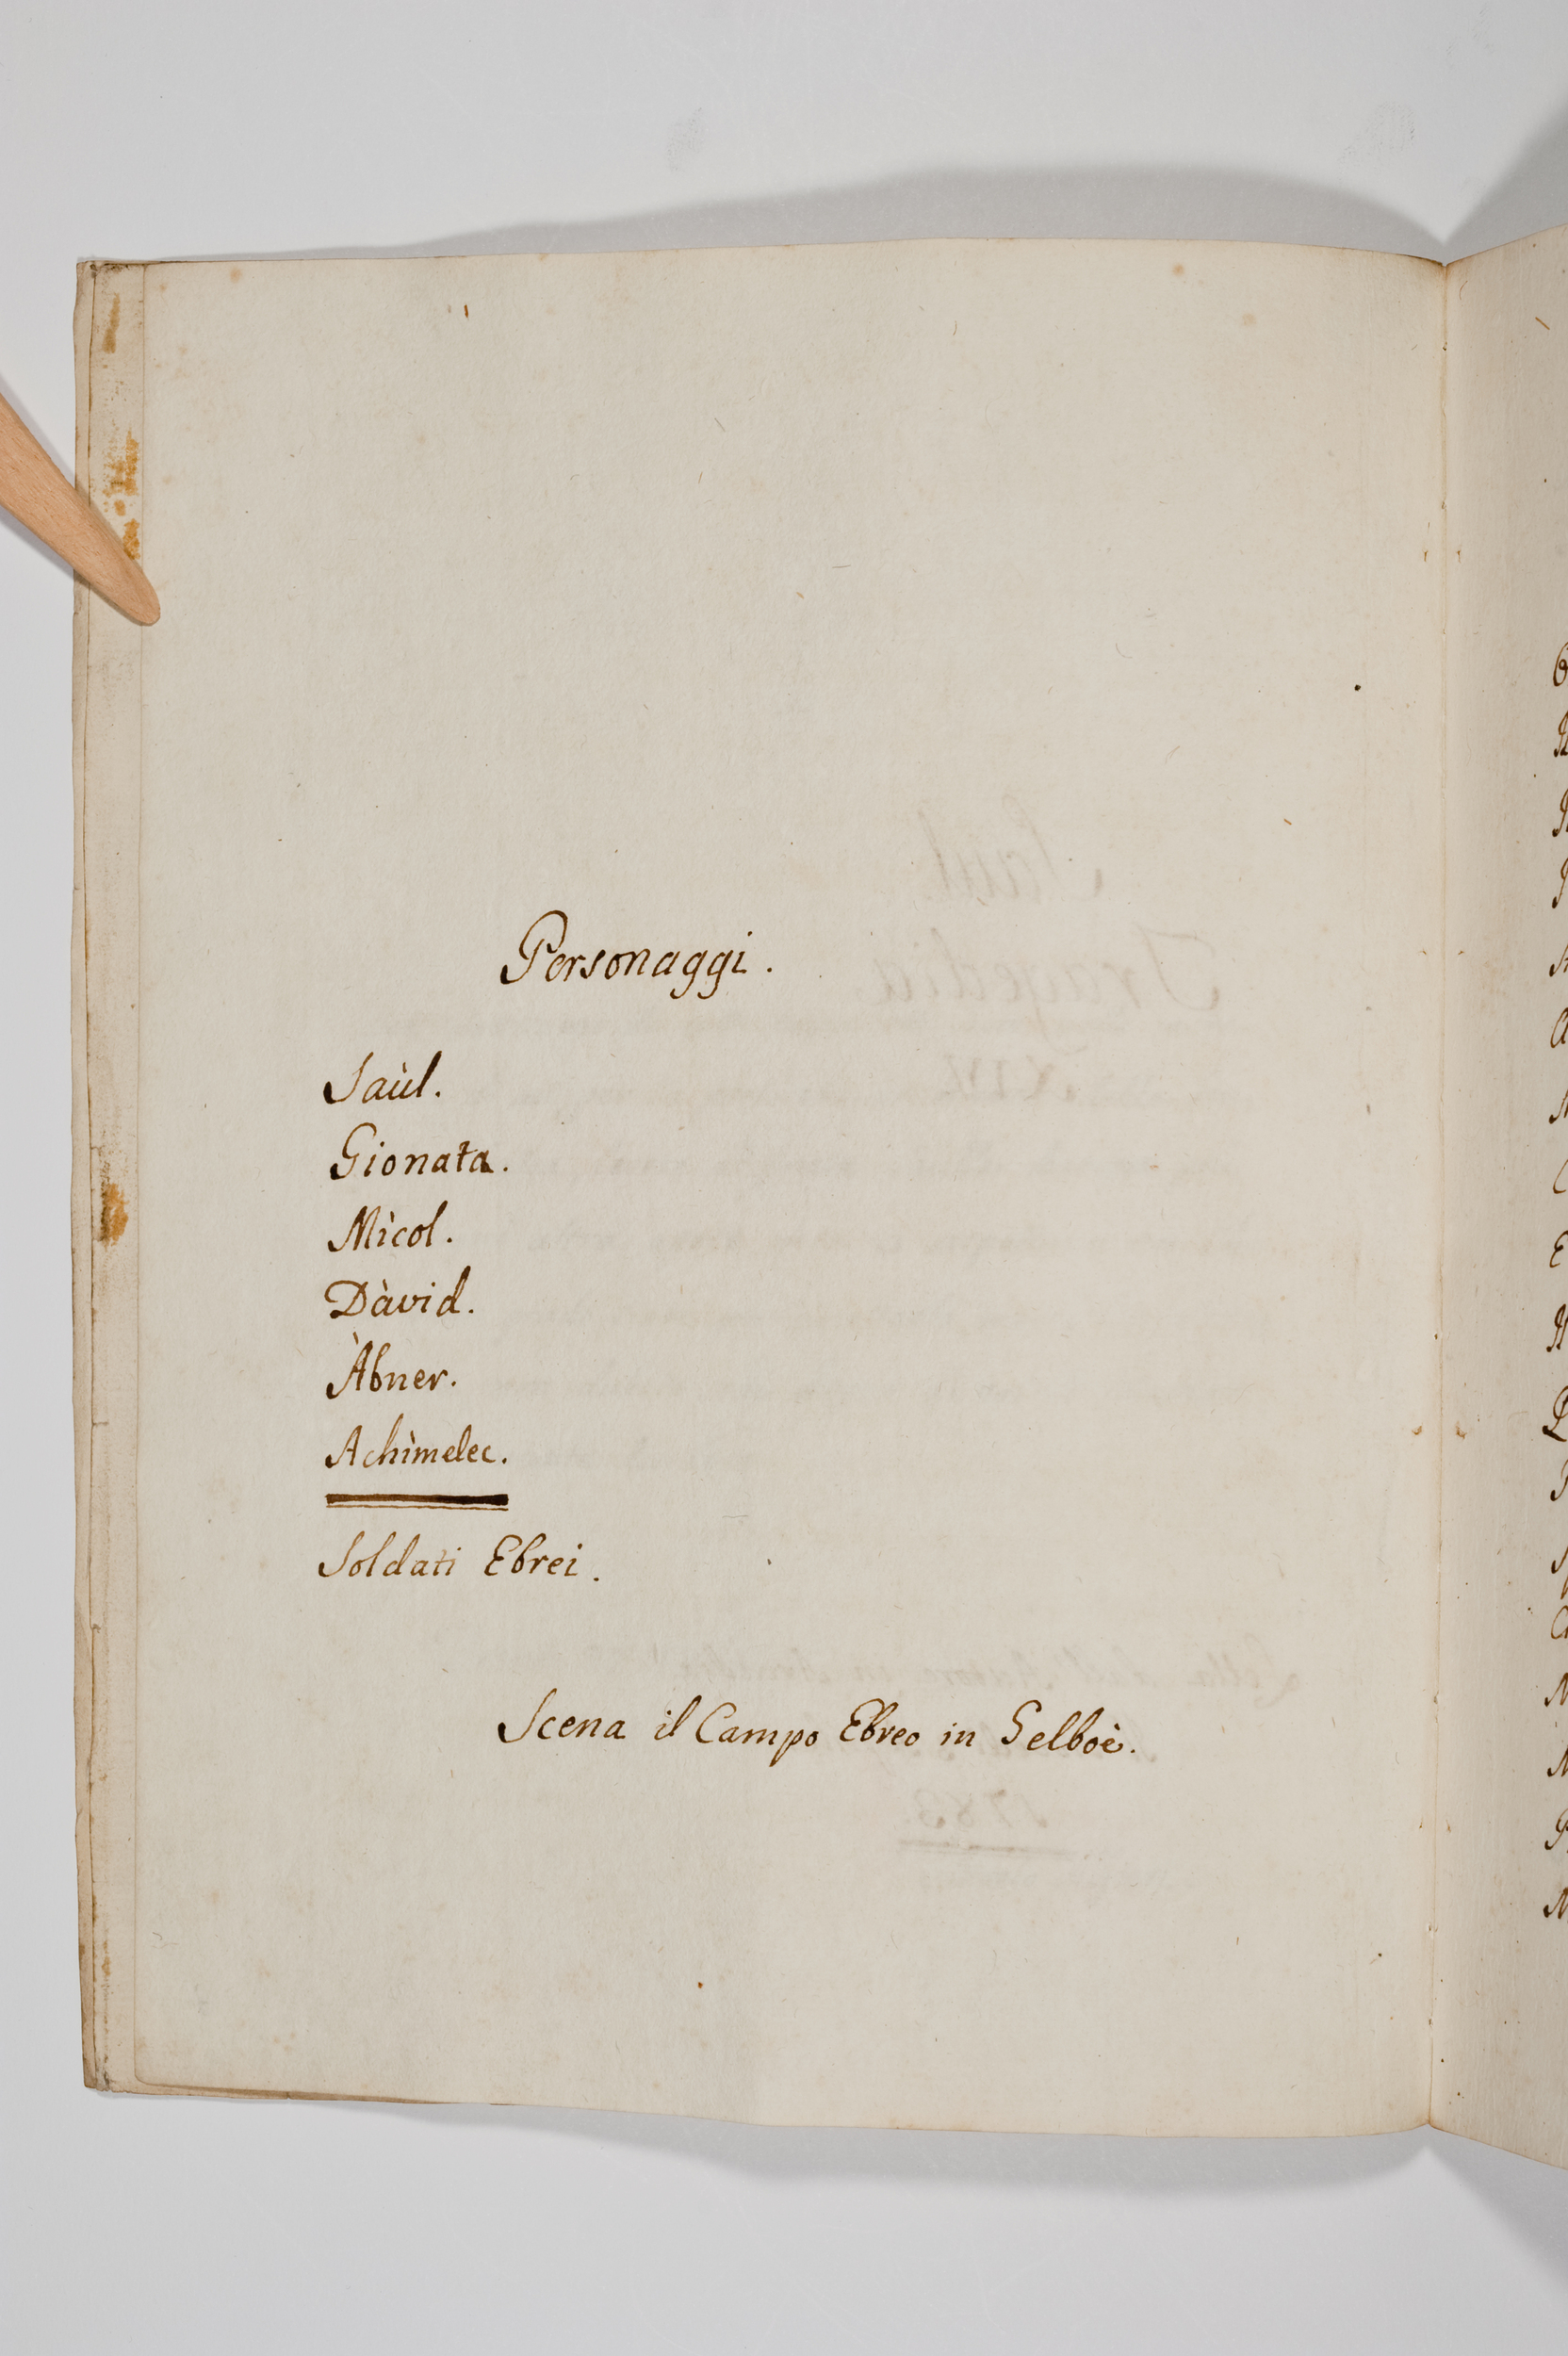 Personaggi.
Saùl.
Gionata.
Mìcol.
Dàvid.
Àbner.
Achìmelec.
Soldati Ebrei.
Scena il Campo Ebreo in Gelboè.